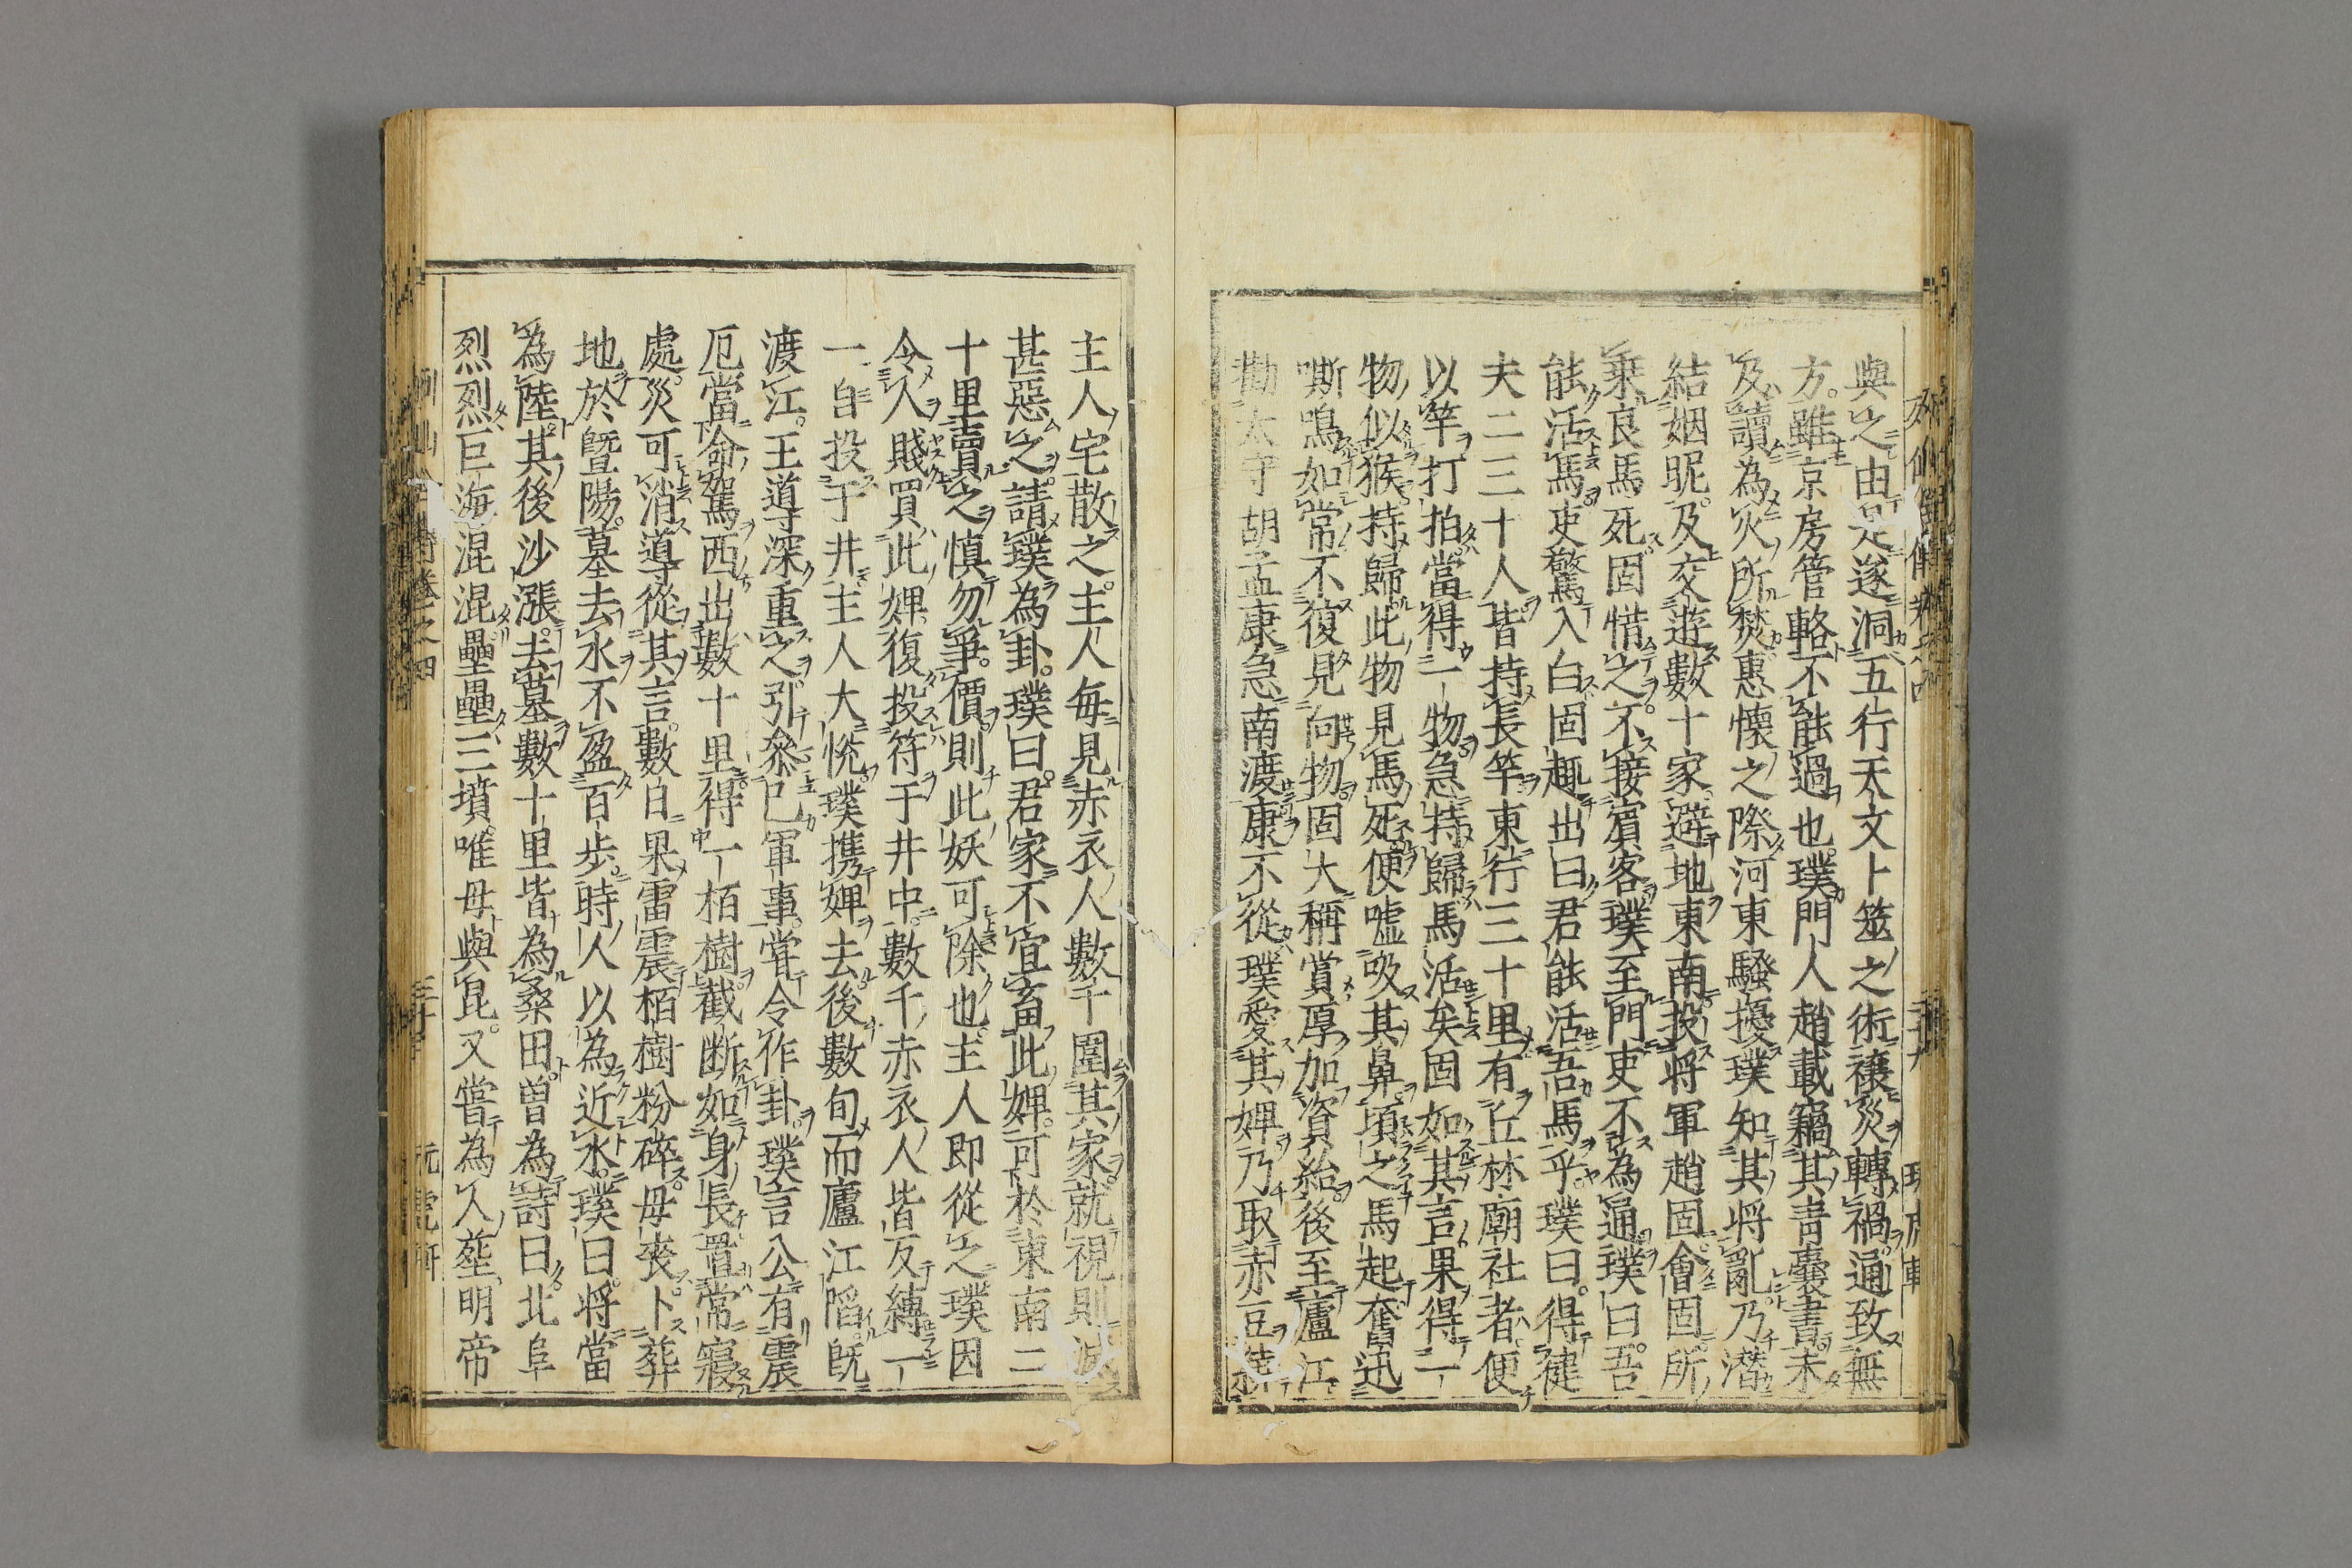 與之由是遂洞五行天文卜筮之術禳災轉禍通致無
方雖京房管輅不能過也璞門人趙載竊其青囊書未
及讀為火所焚惠懐之際河東騷擾璞知其将亂乃潜
結姻昵及交遊數十家避地東南投将軍趙固會固所
乗良馬死固惜之不接賓客璞至門吏不為通璞曰吾
能活馬吏驚入白固趣出曰君能活吾馬乎璞曰得健
夫二三十人皆持長竿東行三十里有丘林廟社者便
以竿打拍當得一物急持歸馬活矣固如其言果得一
物似猴持歸此物見馬死便嘘吸其鼻頃之馬起奮迅
嘶鳴如常不復見向物固大稱賞厚加資給後至廬江
勸太守胡孟康急南渡康不從璞愛其婢乃取赤豆繞
主人宅散之主人毎見赤衣人數千圍其家就視則滅
甚惡之請璞為卦璞曰君家不宜畜此婢可於東南二
十里賣之慎勿爭價則此妖可除也主人即從之璞因
令人賤買此婢復投符于井中數千赤衣人皆反縛一
一自投于井主人大悅璞携婢去後數旬而廬江䧟既
渡江王導深重之引叅已軍事嘗令作卦璞言公有震
厄當命駕西出數十里得一栢樹截断如身長置常寢
處災可消導從其言數日果雷震栢樹粉碎母喪卜葬
地於曁陽墓去水不盈百步時人以為近水璞曰将當
為陸其後沙漲去墓數十里皆為桑田曽為詩曰北阜
烈烈巨海混混壘壘三墳唯母與昆又嘗為人塟明帝